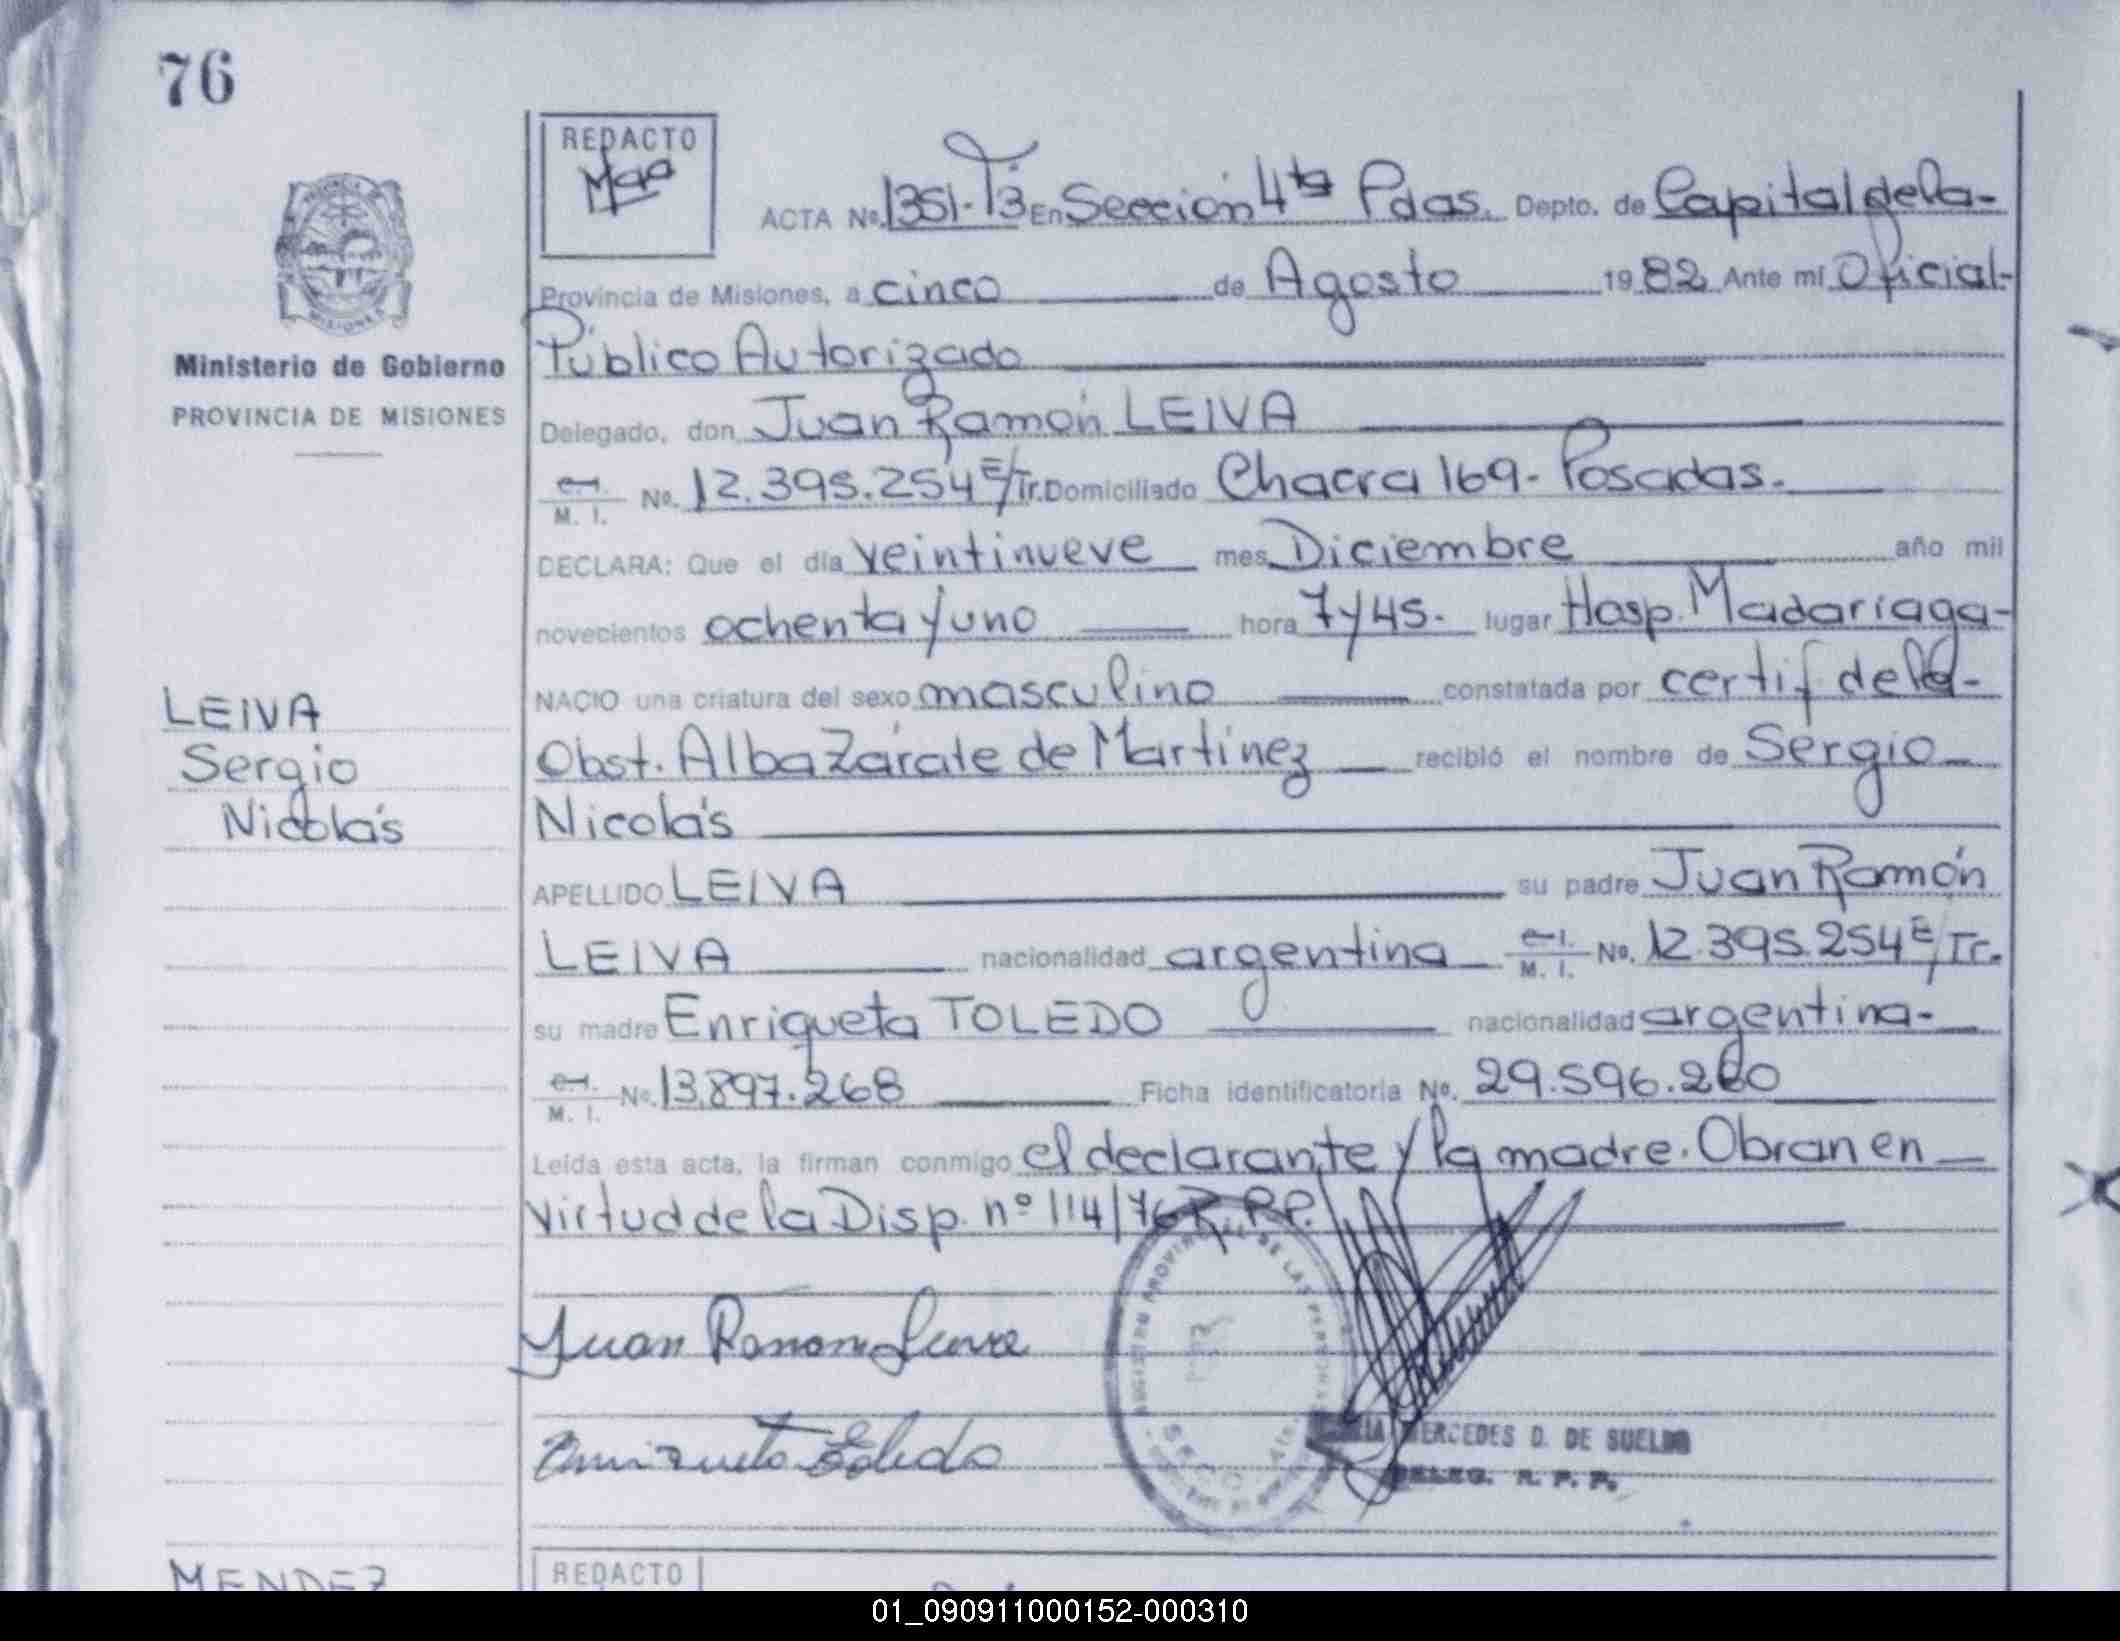 76
REDACTO
ACTA No. 1351-T3 En Sección 4ta Pdas. Depto. de Capital de la-
Provincia de Misiones, a cinco de Agosto 1982 Ante mí Oficial-
Ministerio de Gobierno
PROVINCIA DE MISIONES
Público Autorizado
Delegado, don Juan Ramón LEIVA
M. I. No. 12.395.254 E/Tr. Domiciliado Chacra 169- Posadas.
DECLARA: Que el día veintinueve mes Diciembre año mil
novecientos ochenta y uno hora 7 y 45. lugar Hosp. Madariaga-
LEIVA
Sergio
Nicolás
NACIO una criatura del sexo masculino constatada por certif de la-
Obst. Alba Zárate de Martínez recibió el nombre de Sergio
Nicolás
APELLIDO LEIVA su padre Juan Ramón
LEIVA nacionalidad argentina M. I. No. 12.395.254 E/Tr.
su madre Enriqueta TOLEDO nacionalidad argentina-
M. I. No. 13.897.268 Ficha identificatoria No. 29.596.
Leída esta acta, la firman conmigo el declarante y la madre. Obran en
virtud de la Disp. nº 114/76 R.P.P.
REGISTRO PROVINCIAL DE LAS PERSONAS
Juan Ramon Leiva
MERCEDES D. DE SUELDO
DELEG. R. P. P.
MENDEZ
REDACTO
01_090911000152-000310